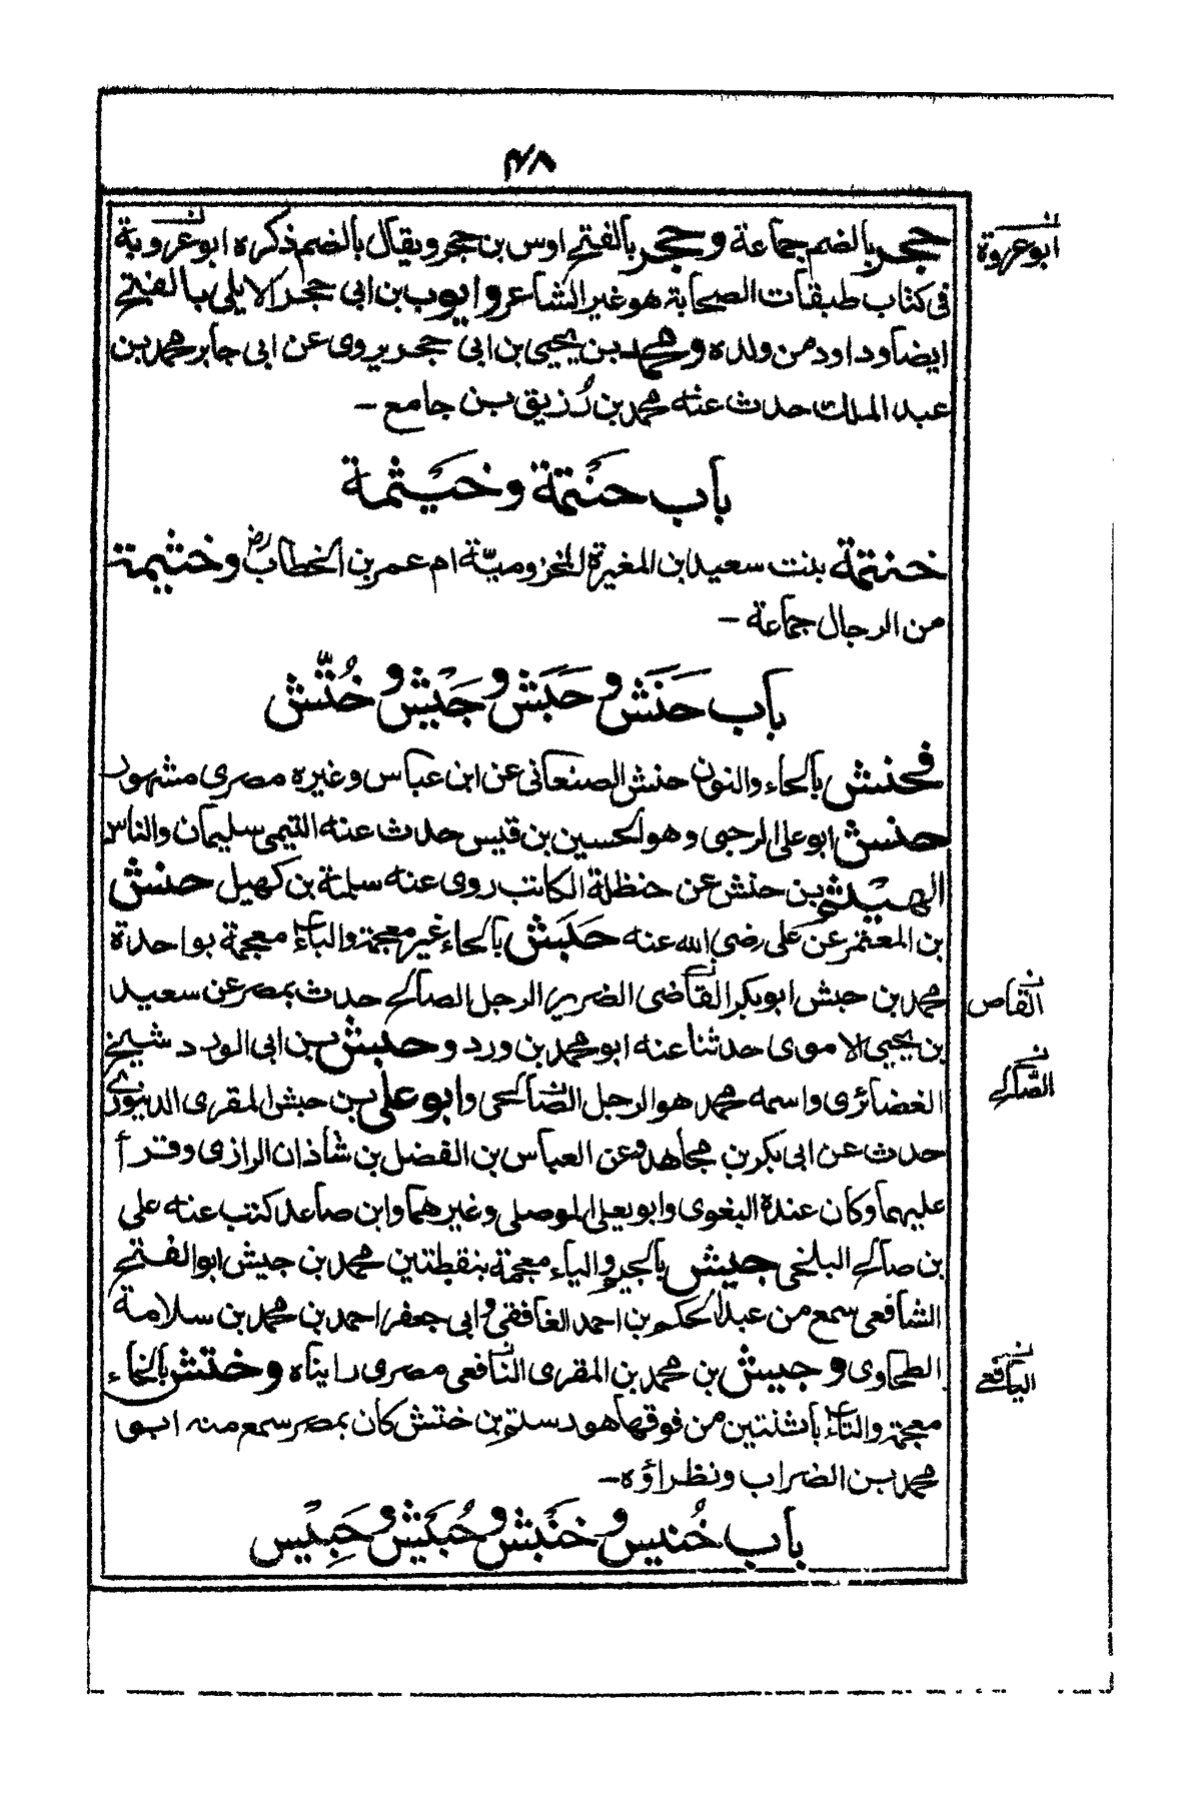 ۴۸
حجر بالضم جماعة وحجر بالفتح اوس بن حجر ويقال بالضم ذكره ابو عروبة
في كتاب طبقات الصحابة هو غير الشاعر وايوب بن ابى حجر الايلى بالفتح
ايضا وداود من ولده ومحمد بن يحيى بن ابى حجر يروى عن ابى جابر محمد بن
عبد الملك حدث عنه محمد بن رُزيق بن جامع –
باب حَنتمة وخَيثمة
خنتمة بنت سعيد ابن المغيرة المخزوميّة ام عمر بن الخطاب رض وخثيمة
من الرجال جماعة –
باب حَنَش وحَبَش وجَيْش وخُتّش
فحنش بالحاء والنون حنش الصنعانى عن ابن عباس وغيره مصرى مشهور
حنش ابو على الرحبى وهو الحسين بن قيس حدث عنه التيمى سليمان والناس
الهيثم بن حنش عن حنظلة الكاتب روى عنه سلمة بن كهيل حنش
بن المعتمر عن على رضى الله عنه حَبَش بالحاء غير معجمة والباء معجمة بواحدة
محمد بن حبش ابو بكر القاضى الضرير الرجل الصالح حدث بمصر عن سعيد
بن يحيى الاموى حدثنا عنه ابو محمد بن ورد وحبش بن ابى الورد شيخ
الغضائرى واسمه محمد هو الرجل الصالحى وابو على بن حبش المقرى الدينورى
حدث عن ابى بكر بن مجاهد وعن العباس بن الفضل بن شاذان الرازى وقرأ
عليهما وكان عنده البغوى وابو يعلى الموصلى وغيرهما وابن صاعد كتب عنه على
بن صالح البلخى جيش بالجيم والياء معجمة بنقطتين محمد بن جيش ابو الفتح
الشافعى سمع من عبد الحكم بن احمد الغافقى وابى جعفر احمد بن محمد بن سلامة
الطحاوى وجيش بن محمد بن المقرى النافعى مصرى رايناه وختش بالخاء
معجمة والتاء باثنتين من فوقها هو دستم بن ختش كان بمصر سمع منه ابو
محمد بن الضراب ونظراؤه –
باب خُنيس وخَنبَش وحُبَيش وحَبِيْس
ابو عروة
القاص
الصّالح
اليافعى